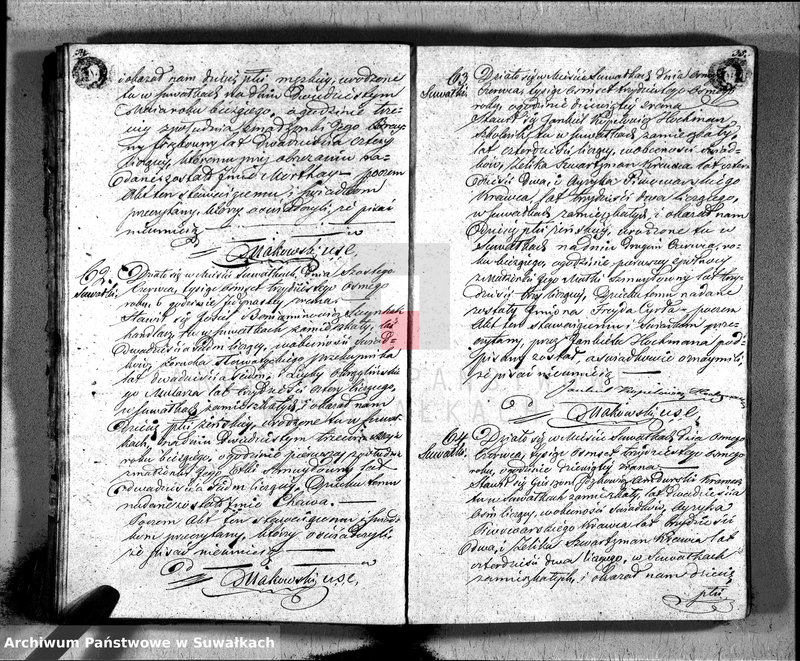 i okazał nam dziecię płci męskiej, urodzone
tu w Suwałkach na dniu Dwudziestym
Maja roku bieżącego, o godzinie trze-
ciej z południa z małżonki Jego
lat dwadzieścia cztery
liczącej, któremu przy obrzezaniu na-
dane zostało Imie Morthay poczem
Akt ten stawającemu i Świadkom
przeczytany, którzy oświadczyli, że pisać
nieumieją.
Makowski USC.
62.
Suwałki.
Działo się w Mieście Suwałkach, dnia Szóstego
Czerwca, tysiąc ośmset trzydziestego ósmego
roku, o godzinie jedynastej zrana.
Stawił się Josiel Boniaminowicz
handlarz, tu w Suwałkach zamieszkały, lat
dwadzieścia siedm liczący, w obecności Świad-
ków, przekupnika
lat dwadzieścia siedm, i
go Mularza lat trzydzieści cztery liczącego,
w Suwałkach zamieszkałych i okazał nam
Dziecię płci żeńskiej, urodzone tu w Suwał-
kach, na dniu Dwudziestym trzecim Maja
roku bieżącego, o godzinie pierwszej z południa
z małżonki Jego Etli lat
dwadzieścia siedm liczącej, Dziecku temu
nadane zostało Imie Chawa.
Poczem Akt ten stawającemu i Świad-
kom przeczytany, którzy oświadczyli,
że pisać nieumieją.
Makowski USC.
63.
Suwałki.
Działo się w Mieście Suwałkach, dnia Ósmego
Czerwca, tysiąc ośmset trzydziestego ósmego
roku, o godzinie dziewiątej zrana
Stawił się Jankiel Kopelowicz Hochman
Szkolnik, tu w Suwałkach zamieszkały,
lat czterdzieści liczący, w obecności Świad-
ków, Zelika Szwartzman Krawca lat czter-
dzieści dwa, i Ayzyka Piwowarskiego
Krawca lat trzydzieści dwa liczącego,
w Suwałkach zamieszkałych i okazał nam
Dziecię płci żeńskiej, urodzone tu w
Suwałkach na dniu Drugim Czerwca, ro-
ku bieżącego, o godzinie pierwszej z północy
z Małżonki Jego Matki Szmuylowny lat trzy-
dzieści trzy liczącej, Dziecku temu nadane
zostały Imiona Frejda Cyrla poczem
Akt ten stawającemu i Świadkom prze-
czytany, przez Jankiela Hochmana pod-
pisany został, a świadkowie oznaymili
że pisać nieumieją.
Jankiel Kopelowicz Hochman
Makowski USC.
64.
Suwałki.
Działo się w Mieście Suwałkach, dnia Ósmego
Czerwca, tysiąc ośmset trzydziestego ósmego
roku, o godzinie dziewiątej zrana.
Stawił się Krawiec
tu w Suwałkach zamieszkały, lat dwadzieścia
ośm liczący, w obecności Świadków, Ayzyka
Piwowarskiego Krawca lat trzydzieści
dwa, i Zelika Szwartzman Krawca lat
czterdzieści dwa liczącego, w Suwałkach
zamieszkałych, i okazał nam Dziecię
płci
Archiwum Państwowe w Suwałkach